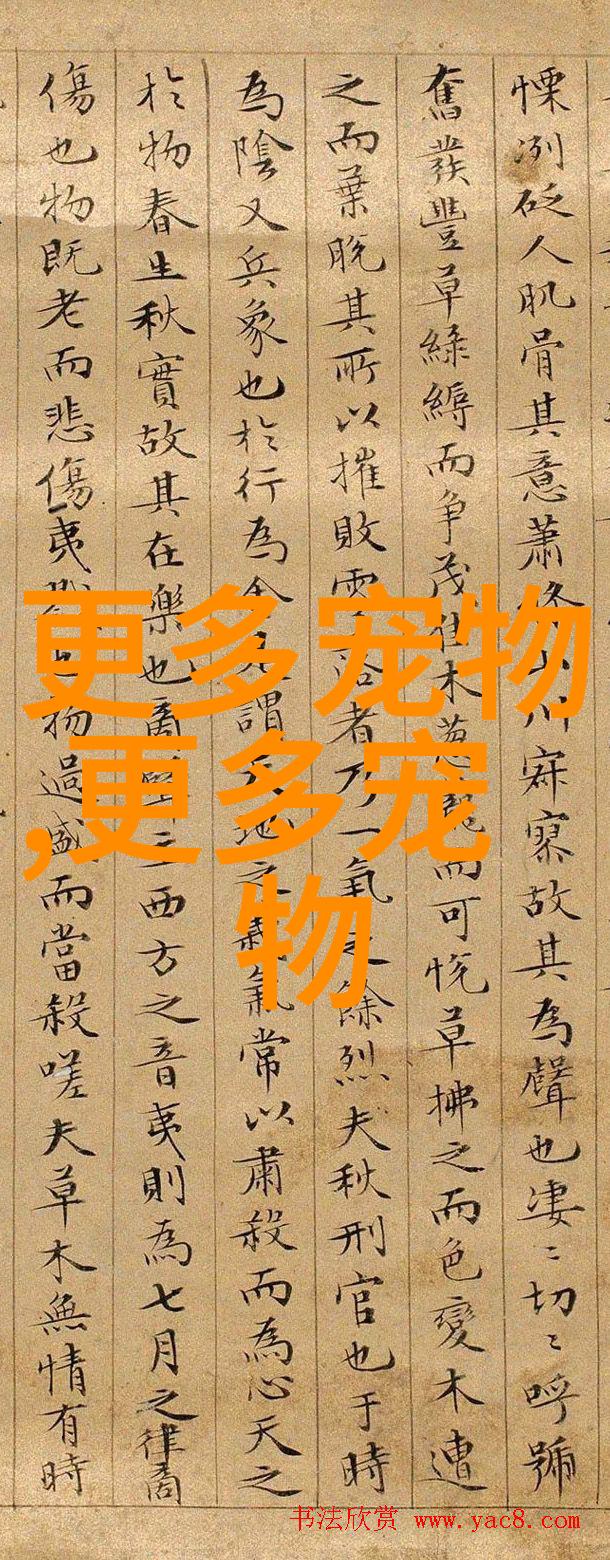 慄冽砭人肌骨其意蕭條山川寂寥故其為聲也凄〻切〻呼號
奮發豐草綠縟而争茂佳木葱蘢而可悅草拂之而色變木遭
之而葉脫其所以摧敗零落者乃一氣之餘烈夫秋刑官也于時
為陰又兵象也於行為金是謂天地之義氣常以肅殺而為心天之
於物春生秋實故其在樂也商聲主西方之音夷則為七月之律商
傷也物既老而悲傷夷戮也物過盛而當殺嗟夫草木無情有時
更多宠物
,更多宠
物
书法欣赏 www.yac8.com